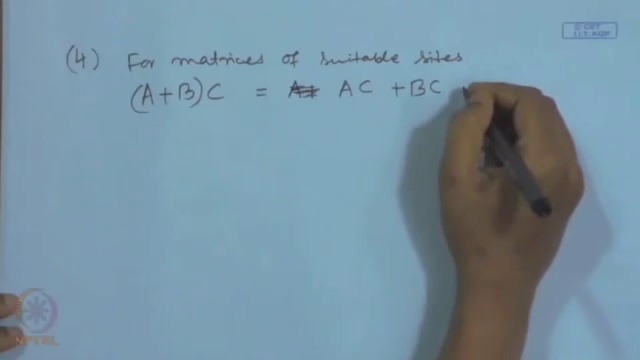 © CET
I.I.T. KGP
(4) For matrices of suitable sizes
(A+B)C = AC + BC
NPTEL